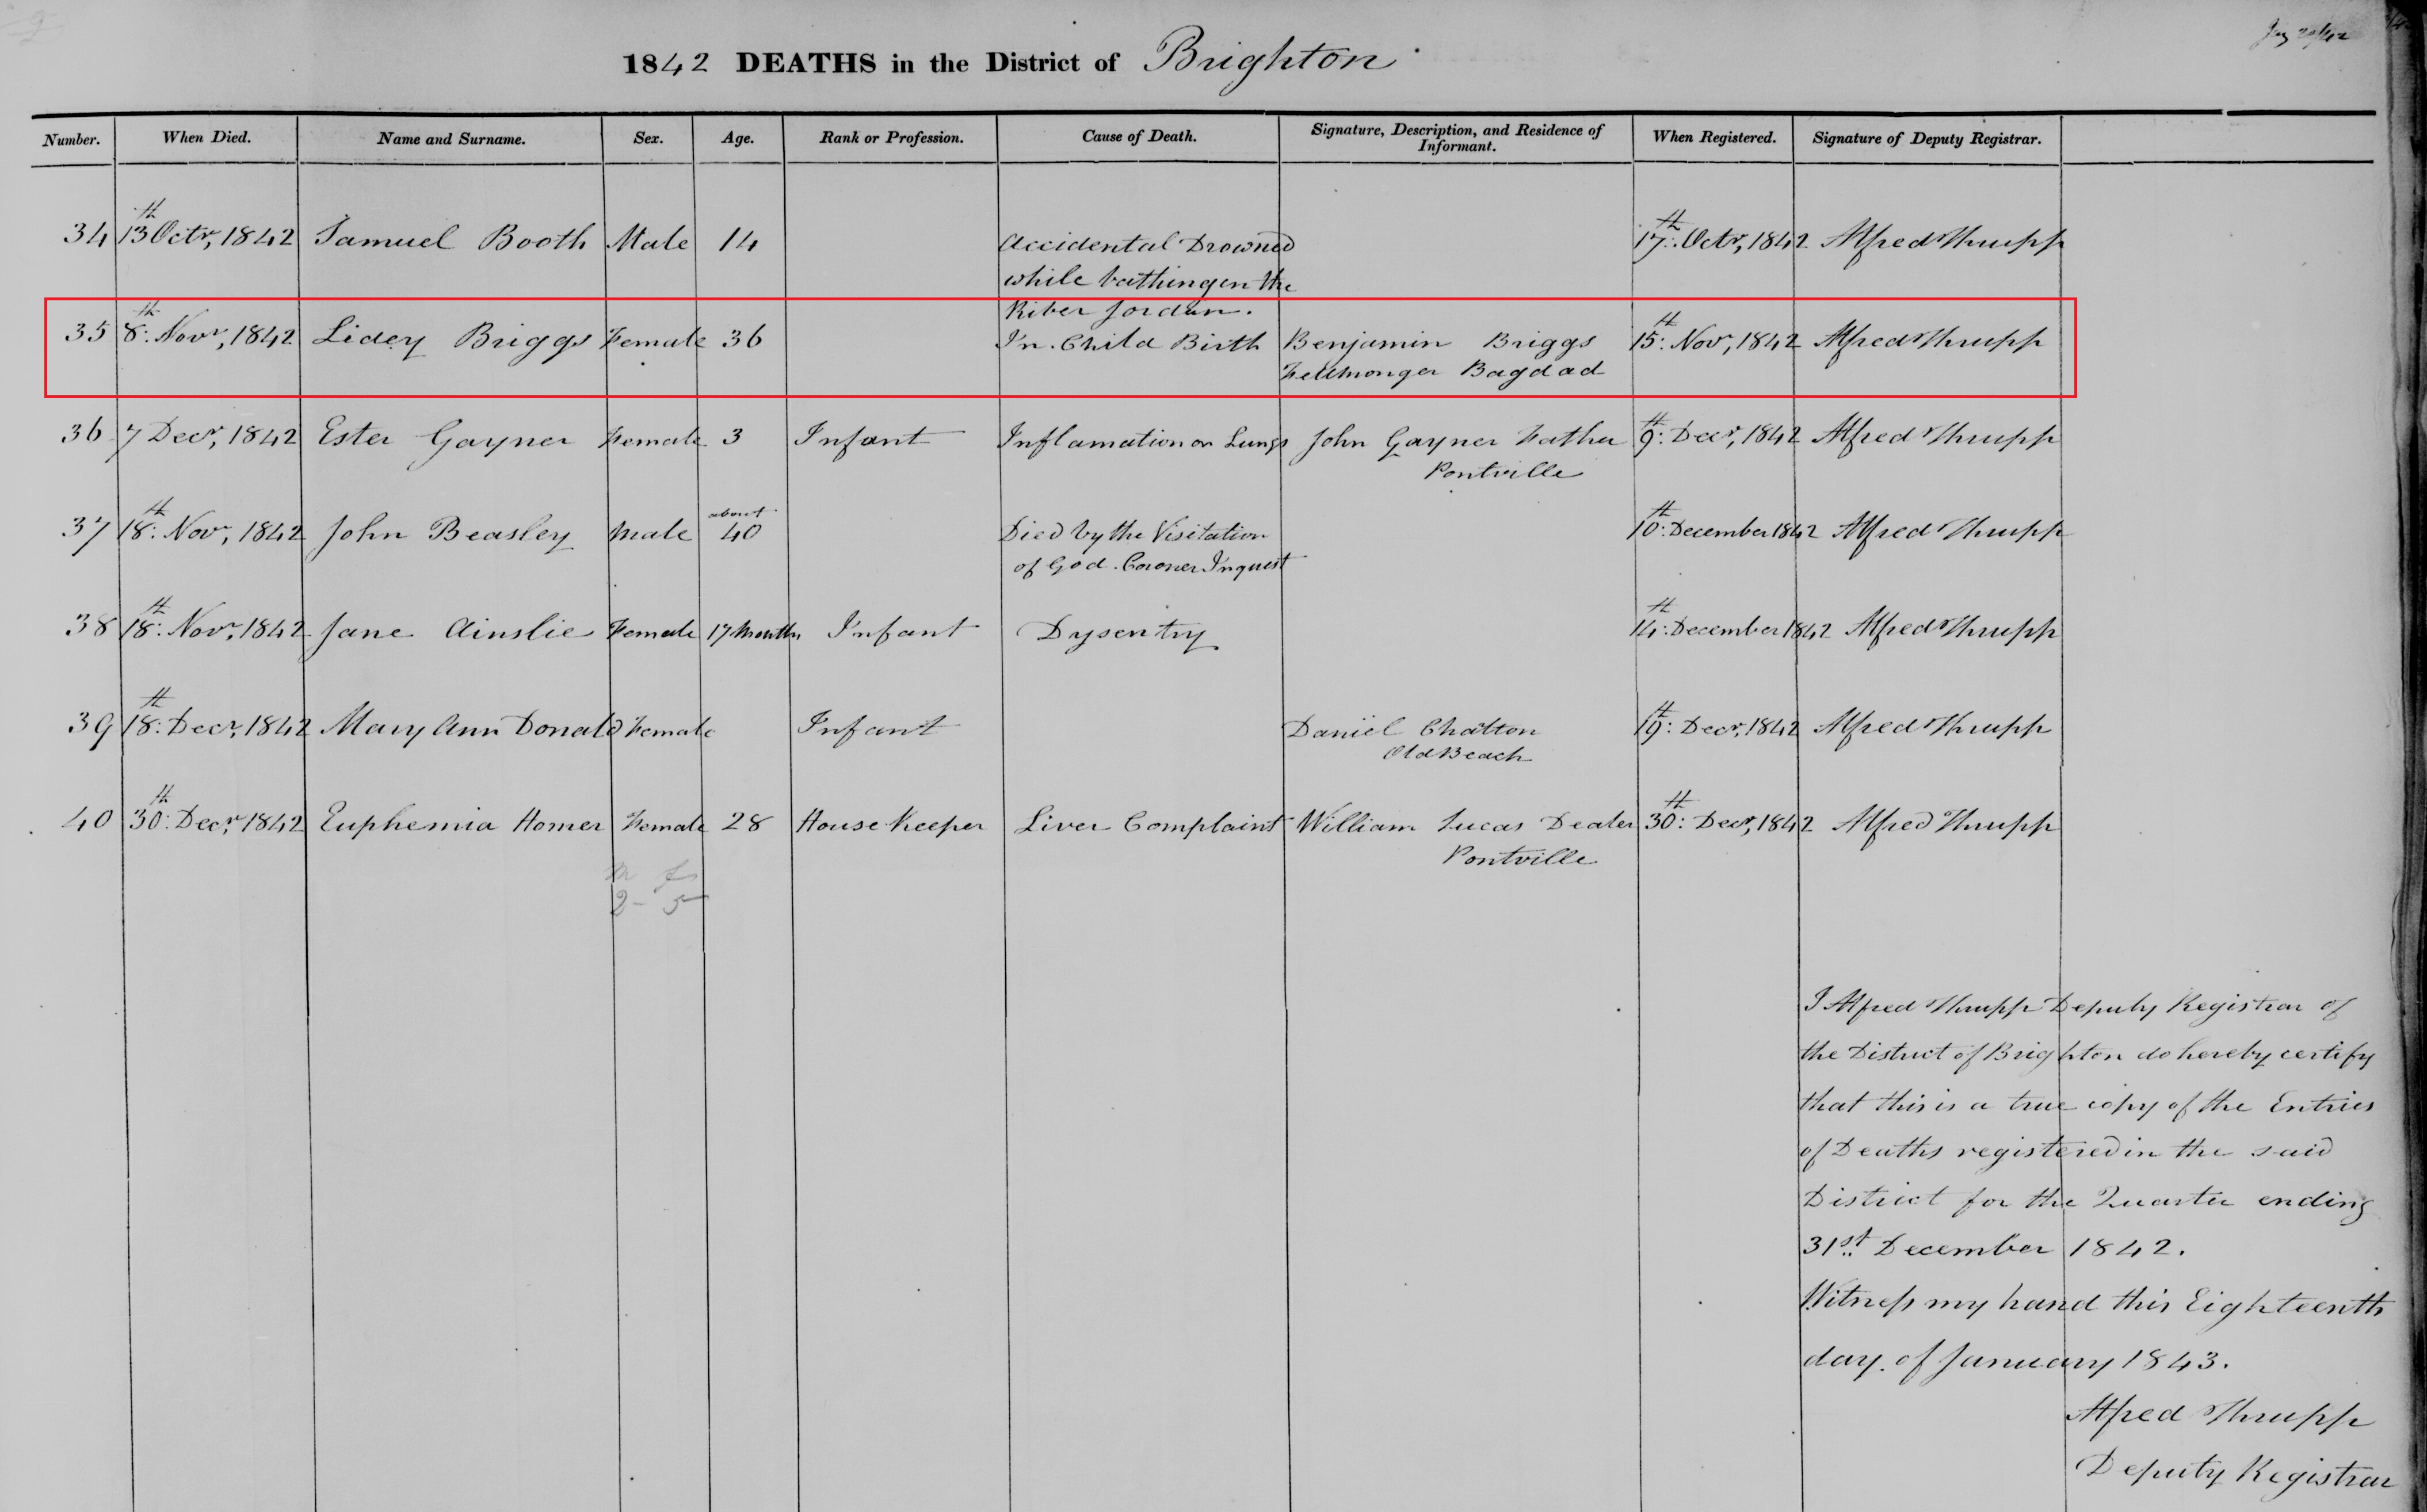 1842 DEATHS in the District of Brighton
Number. When Died. Name and Surname. Sex. Age. Rank or Profession. Cause of Death. Signature, Description, and Residence of Informant. When Registered. Signature of Deputy Registrar.
34 13th Octr, 1842 Samuel Booth Male 14 Accidental Drowned 17th: Octr, 1842 Alfred Thrupp
while bathing in the
River Jordan.
35 8th: Novr, 1842 Lidey Briggs Female 36 In Child Birth Benjamin Briggs 15th: Novr, 1842 Alfred Thrupp
Fellmonger Bagdad
36 7 Decr, 1842 Ester Gayner Female 3 Infant Inflamation on Lungs John Gayner Father 9th: Decr, 1842 Alfred Thrupp
Pontville
37 18th: Novr, 1842 John Beasley Male about 40 Died by the Visitation 10th: December 1842 Alfred Thrupp
of God. Coroner Inquest
38 18th: Novr, 1842 Jane Ainslie Female 17 Months Infant Dysentry 14th: December 1842 Alfred Thrupp
39 18th: Decr, 1842 Mary Ann Donald Female Infant Daniel Chatton 19th: Decr, 1842 Alfred Thrupp
Old Beach
40 30th: Decr, 1842 Euphemia Homer Female 28 House Keeper Liver Complaint William Lucas Dealer 30th: Decr, 1842 Alfred Thrupp
Pontville
m fs
2 - 5
I Alfred Thrupp Deputy Registrar of
the District of Brighton do hereby certify
that this is a true copy of the Entries
of Deaths registered in the said
District for the Quarter ending
31st December 1842.
Witness my hand this Eighteenth
day of January 1843.
Alfred Thrupp
Deputy Registrar